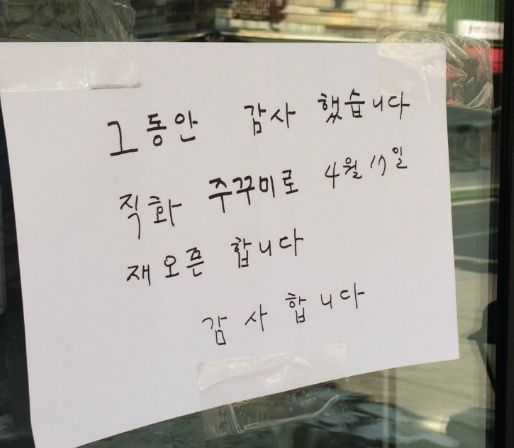 그동안 감사 했습니다
직화 주꾸미로 4월 17일
재오픈 합니다
감사합니다